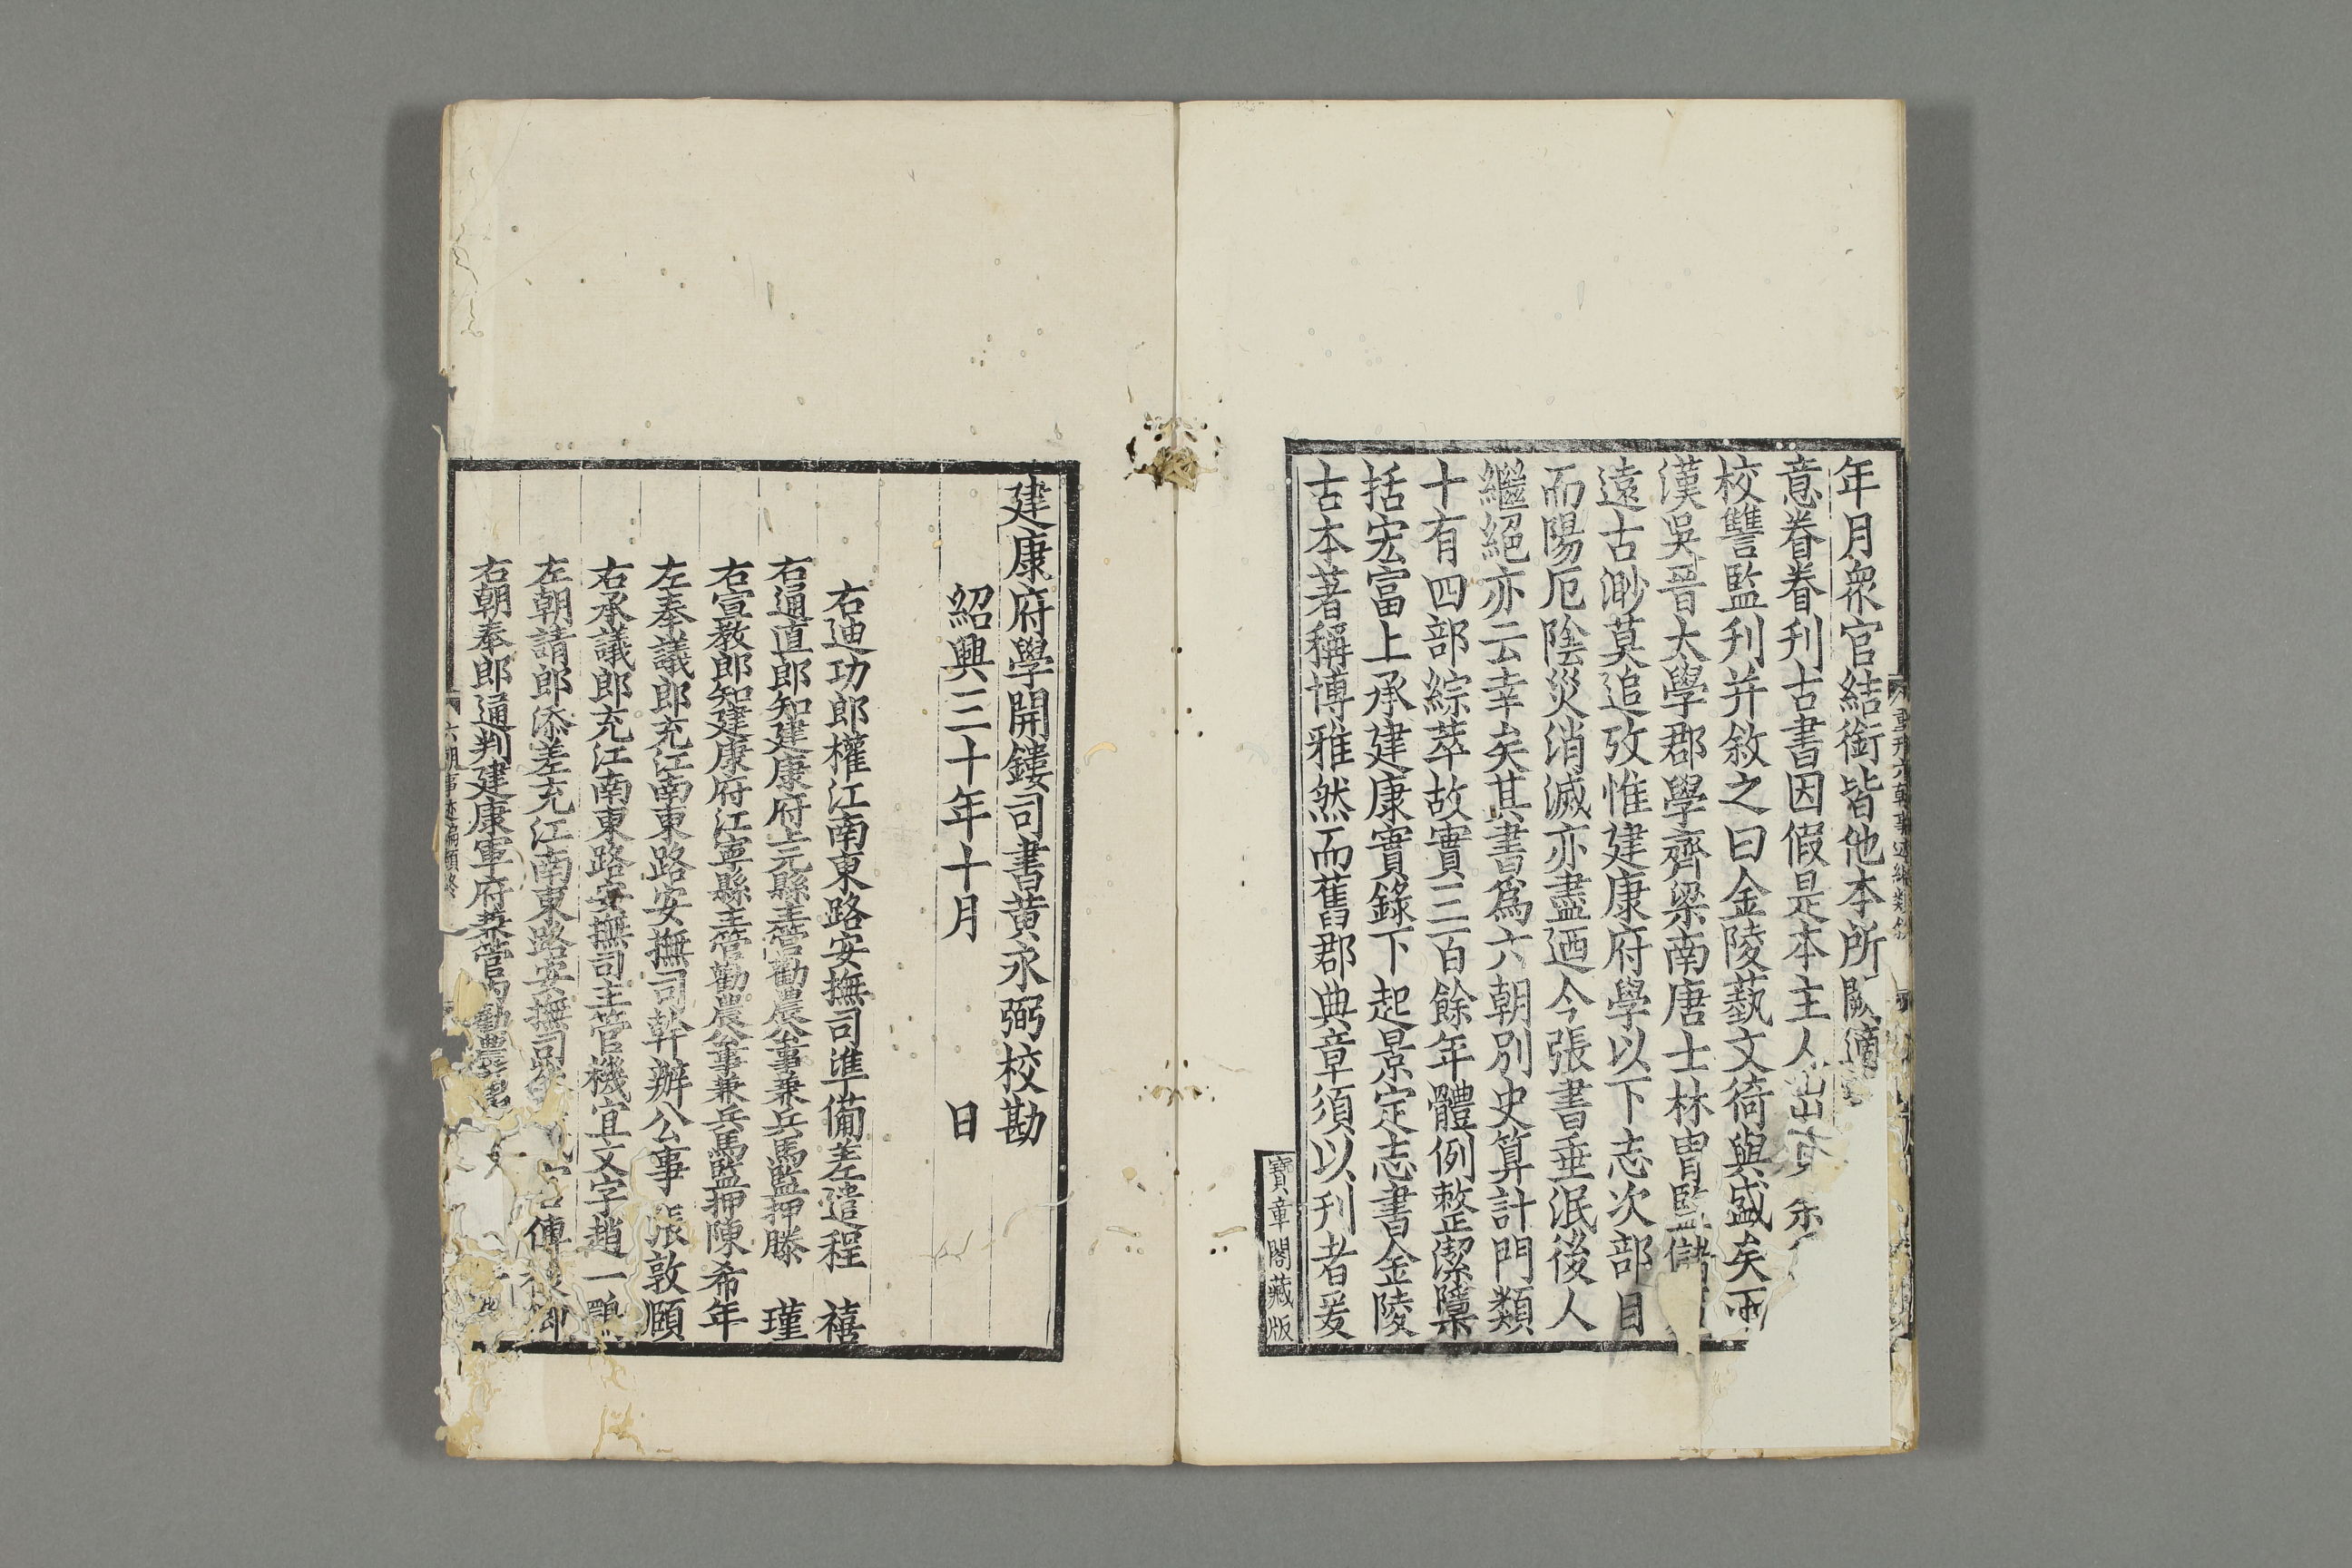 年月衆官結銜皆他本所闕適
意眷眷刊古書因假是本主人出
校讐監刊并敘之曰金陵藝文猗與盛矣
漢吳晉太學郡學齊梁南唐士林冑監
遠古渺莫追攷惟建康府學以下志次部目
而陽厄陰災消滅亦盡迺今張書垂泯後人
繼絕亦云幸矣其書爲六朝別史算計門類
十有四部綜萃故實三百餘年體例整潔隱
括宏富上承建康實錄下起景定志書金陵
古本著稱博雅然而舊郡典章須以刊者爰
寶章閣藏版
建康府學開鏤司書黄永弼校勘
紹興三十年十月 日
右迪功郎權江南東路安撫司準備差遣程 禧
右通直郎知建康府上元縣主管勸農公事兼兵馬監押滕 瑾
右宣教郎知建康府江寧縣主管勸農公事兼兵馬監押陳希年
左奉議郎充江南東路安撫司幹辦公事張敦頤
右承議郎充江南東路安撫司主管機宜文字趙一
左朝請郎添差充江南東路安撫司 傅
右朝奉郎通判建康軍府兼管內勸農
六朝事迹編類終